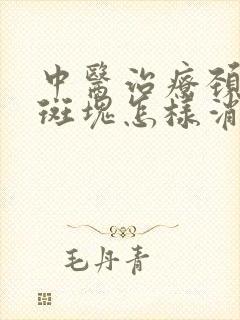 中醫治療頸
斑塊怎樣消
毛丹青